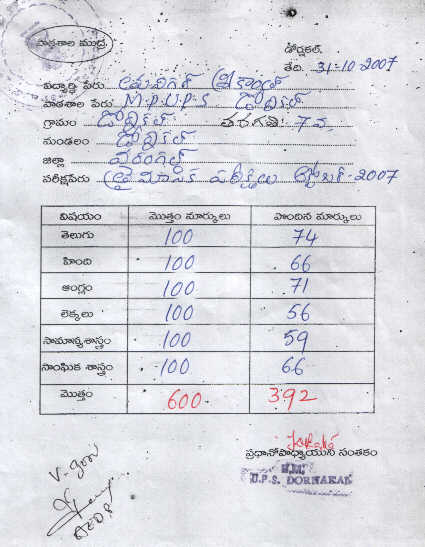 పాఠశాల ముద్ర
డోర్నకల్.
తేది. 31-10-2007
విద్యార్థి పేరు
పాఠశాల పేరు M.P.U.P.S డోర్నకల్
గ్రామం డోర్నకల్ తరగతి: 7వ
మండలం డోర్నకల్
జిల్లా వరంగల్
పరీక్షపేరు త్రైమాసిక పరీక్షలు అక్టోబర్-2007
విషయం మొత్తం మార్కులు పొందిన మార్కులు
తెలుగు 100 74
హింది 100 66
ఆంగ్లం 100 71
లెక్కలు 100 56
సామాన్యశాస్త్రం 100 59
సాంఘిక శాస్త్రం 100 66
మొత్తం 600 392
ప్రధానోపాధ్యాయుని సంతకం
H.M.
U.P.S. DORNAKAL